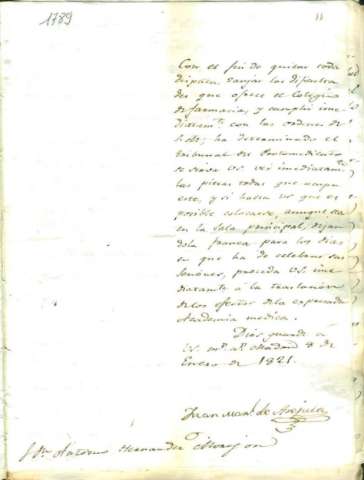 1789
11
Con el fin de quitar toda
disputa zanjar las dificulta
des que ofrece el Colegio
de farmacia, y cumplir inme
diatamte con las ordenes de
S.M.; ha determinado el
tribunal del Protomedicato
se sirva VS. ver inmediatamte
las piezas todas que ocupa
este, y si halla VS que es
posible colocarse, aunque sea
en la Sala principal, dejan
dola franca para los dias
en que ha de celebrar sus
sesiones, proceda VS. inme
diatamte á la traslacion
de los efectos de la expresada
Academia medica.
Dios guarde a
VS. ms. as. Madrid 8 de
Enero de 1821.
Juan Manl. de
Sr. Dn. Antonio Hernandez Morejon